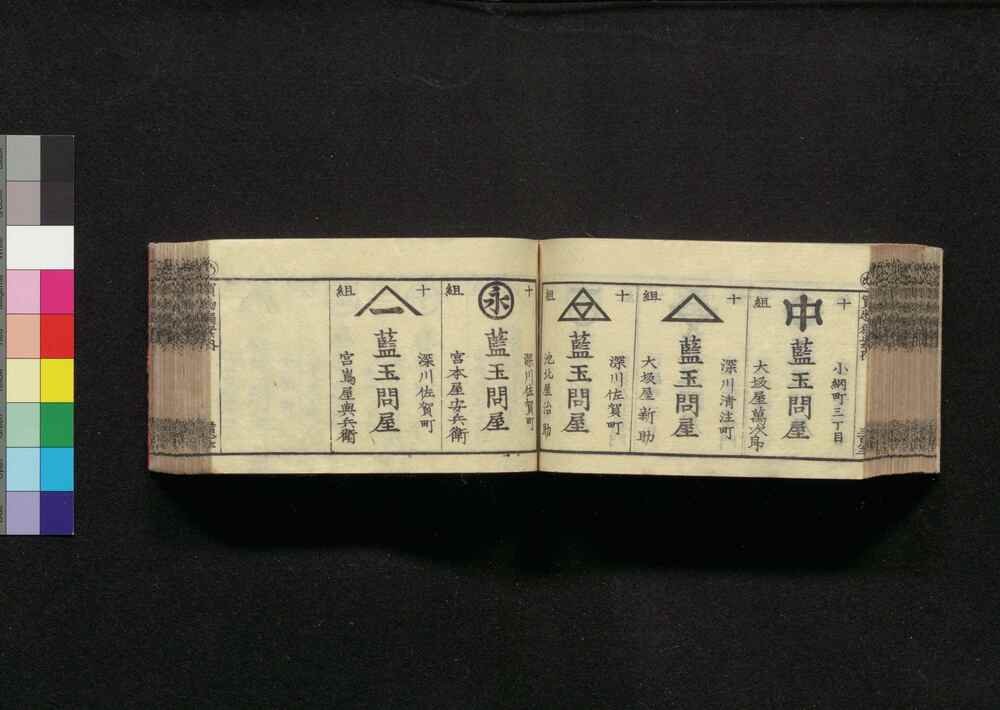 十組
中
小網町三丁目
藍玉問屋
大坂屋萬次郎
十組
深川清住町
藍玉問屋
大坂屋新助
十組
深川佐賀町
藍玉問屋
池北屋治助
十組
永
深川佐賀町
藍玉問屋
宮本屋安兵衛
十組
一
深川佐賀町
藍玉問屋
宮嶌屋與兵衛